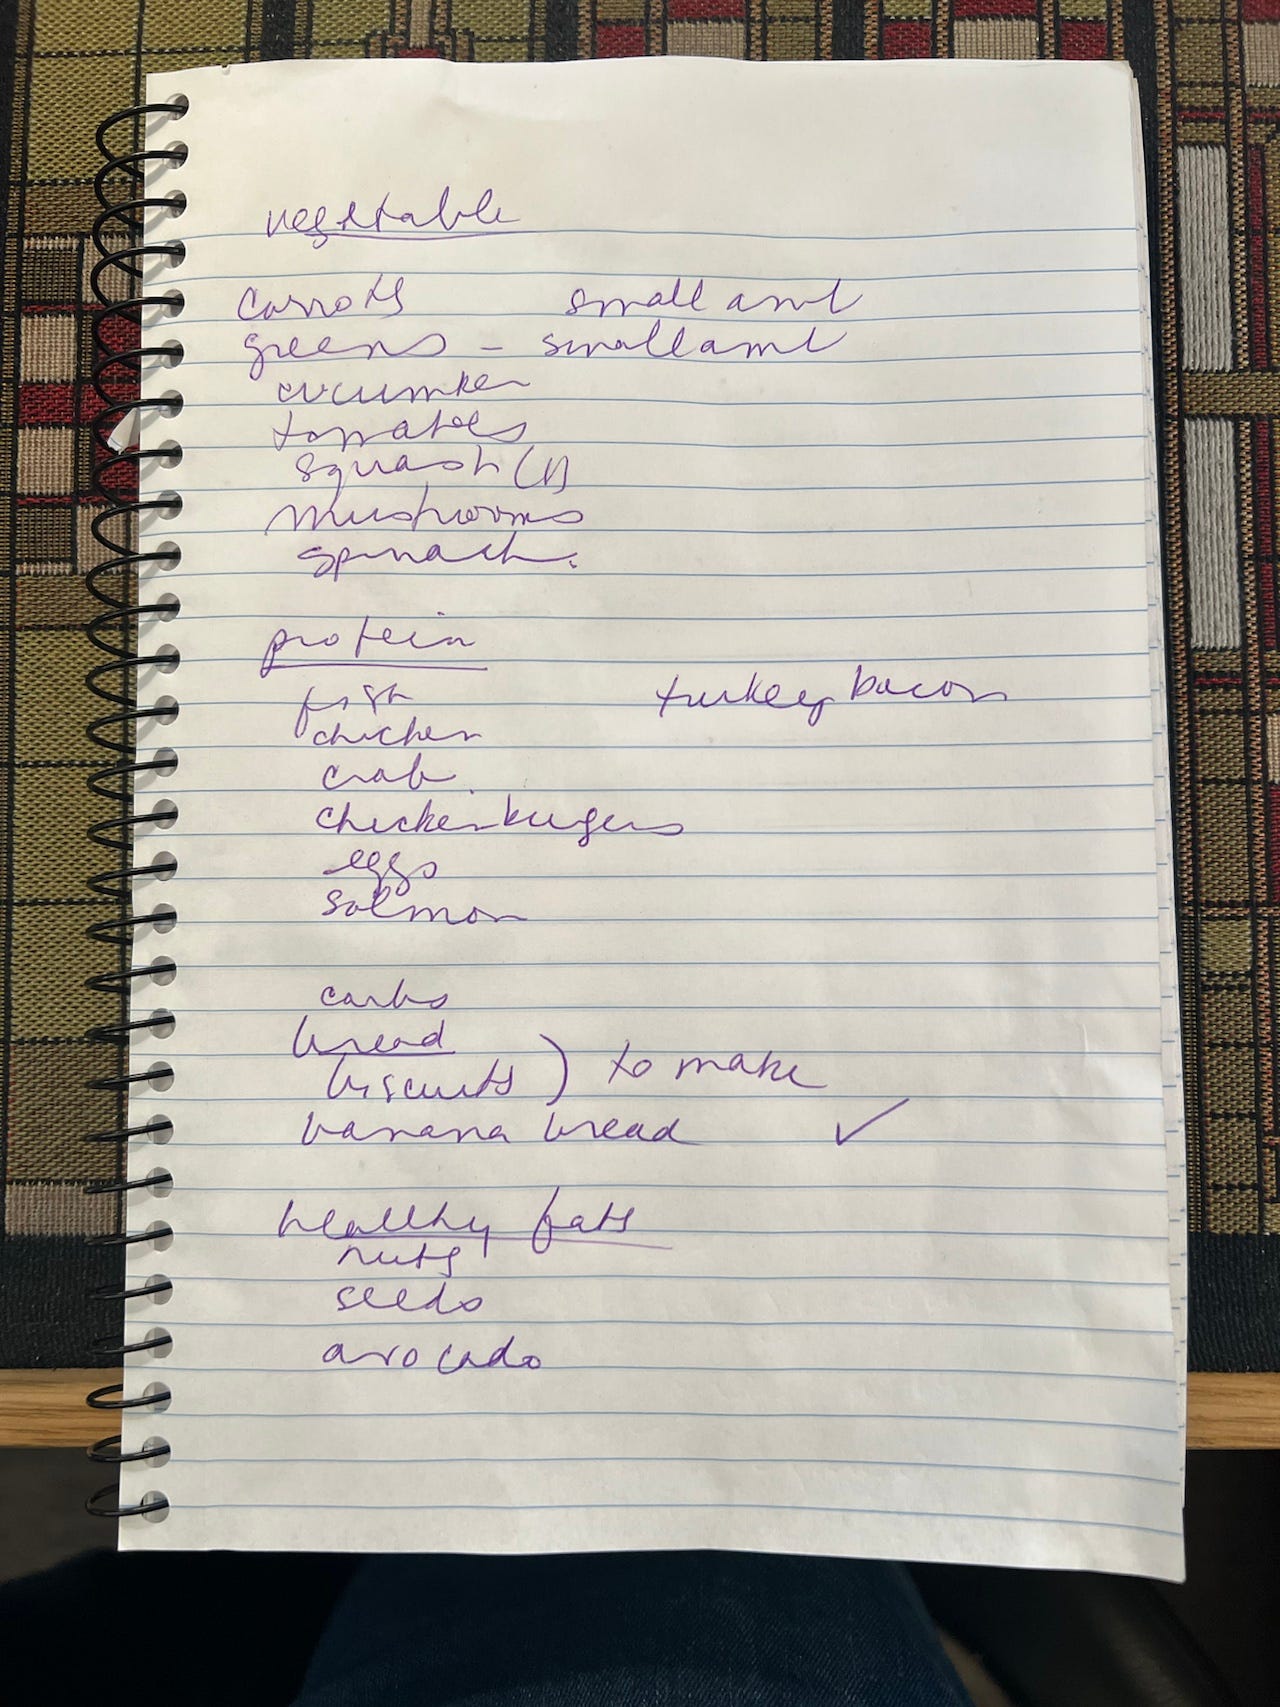 vegetable
carrots small amt
greens - small amt
cucumber
tomatoes
squash (1)
mushrooms
spinach.
protein
fish turkey bacon
chicken
crab
chicken burgers
eggs
salmon
carbs
bread
biscuits ) to make
banana bread ✓
healthy fats
nuts
seeds
avocado